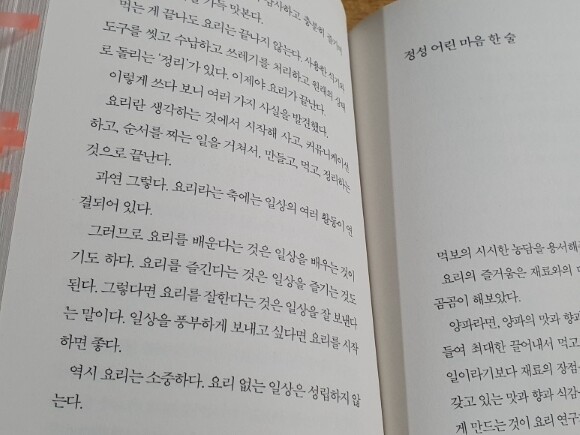 가득 맛본다.
먹는 게 끝나도 요리는 끝나지 않는다. 사용한 식기와
도구를 씻고 수납하고 쓰레기를 처리하고 원래의 상태
로 돌리는 '정리'가 있다. 이제야 요리가 끝난다.
이렇게 쓰다 보니 여러 가지 사실을 발견했다.
요리란 생각하는 것에서 시작해 사고, 커뮤니케이션
하고, 순서를 짜는 일을 거쳐서. 만들고, 먹고, 정리하는
것으로 끝난다.
과연 그렇다. 요리라는 축에는 일상의 여러 활동이 연
결되어 있다.
그러므로 요리를 배운다는 것은 일상을 배우는 것이
기도 하다. 요리를 즐긴다는 것은 일상을 즐기는 것도
된다. 그렇다면 요리를 잘한다는 것은 일상을 잘 보낸다
는 말이다. 일상을 풍부하게 보내고 싶다면 요리를 시작
하면 좋다.
역시 요리는 소중하다. 요리 없는 일상은 성립하지 않
는다.
정성 어린 마음 한 술
먹보의 시시한 농담을 용서해
요리의 즐거움은 재료와의 대
곰곰이 해보았다.
양파라면, 양파의 맛과 향과
들여 최대한 끌어내서 먹고
일이라기보다 재료의 장점
갖고 있는 맛과 향과 식감
게 만드는 것이 요리 연구